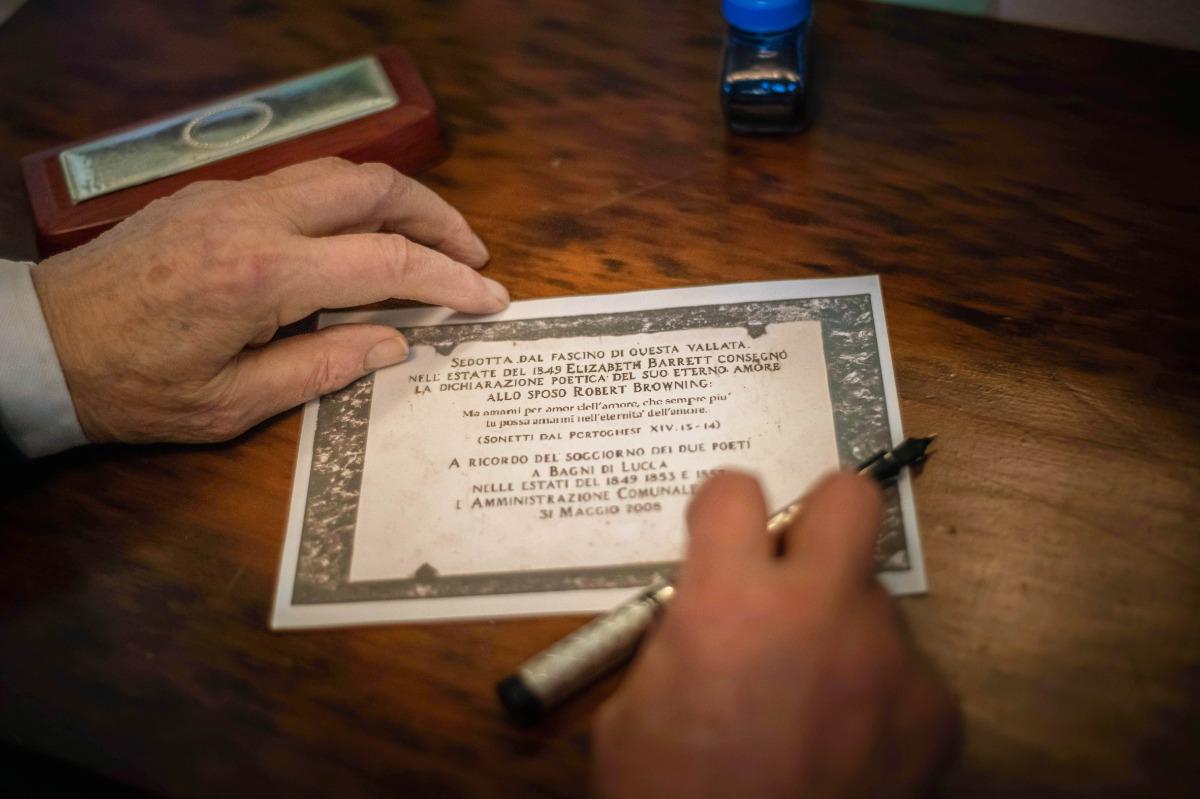 SEDOTTA DAL FASCINO DI QUESTA VALLATA.
NELL' ESTATE DEL 1849 ELIZABETH BARRETT CONSEGNÓ
LA DICHIARAZIONE POETICA DEL SUO ETERNO AMORE
ALLO SPOSO ROBERT BROWNING:
Ma amami per amor dell'amore, che sempre piu'
tu possa amarmi nell'eternita' dell'amore.
(SONETTI DAL PORTOGHESE XIV. 13-14)
A RICORDO DEL SOGGIORNO DEI DUE POETI
A BAGNI DI LUCCA
NELLE ESTATI DEL 1849 1853 E
L'AMMINISTRAZIONE COMUNALE
31 MAGGIO 2008